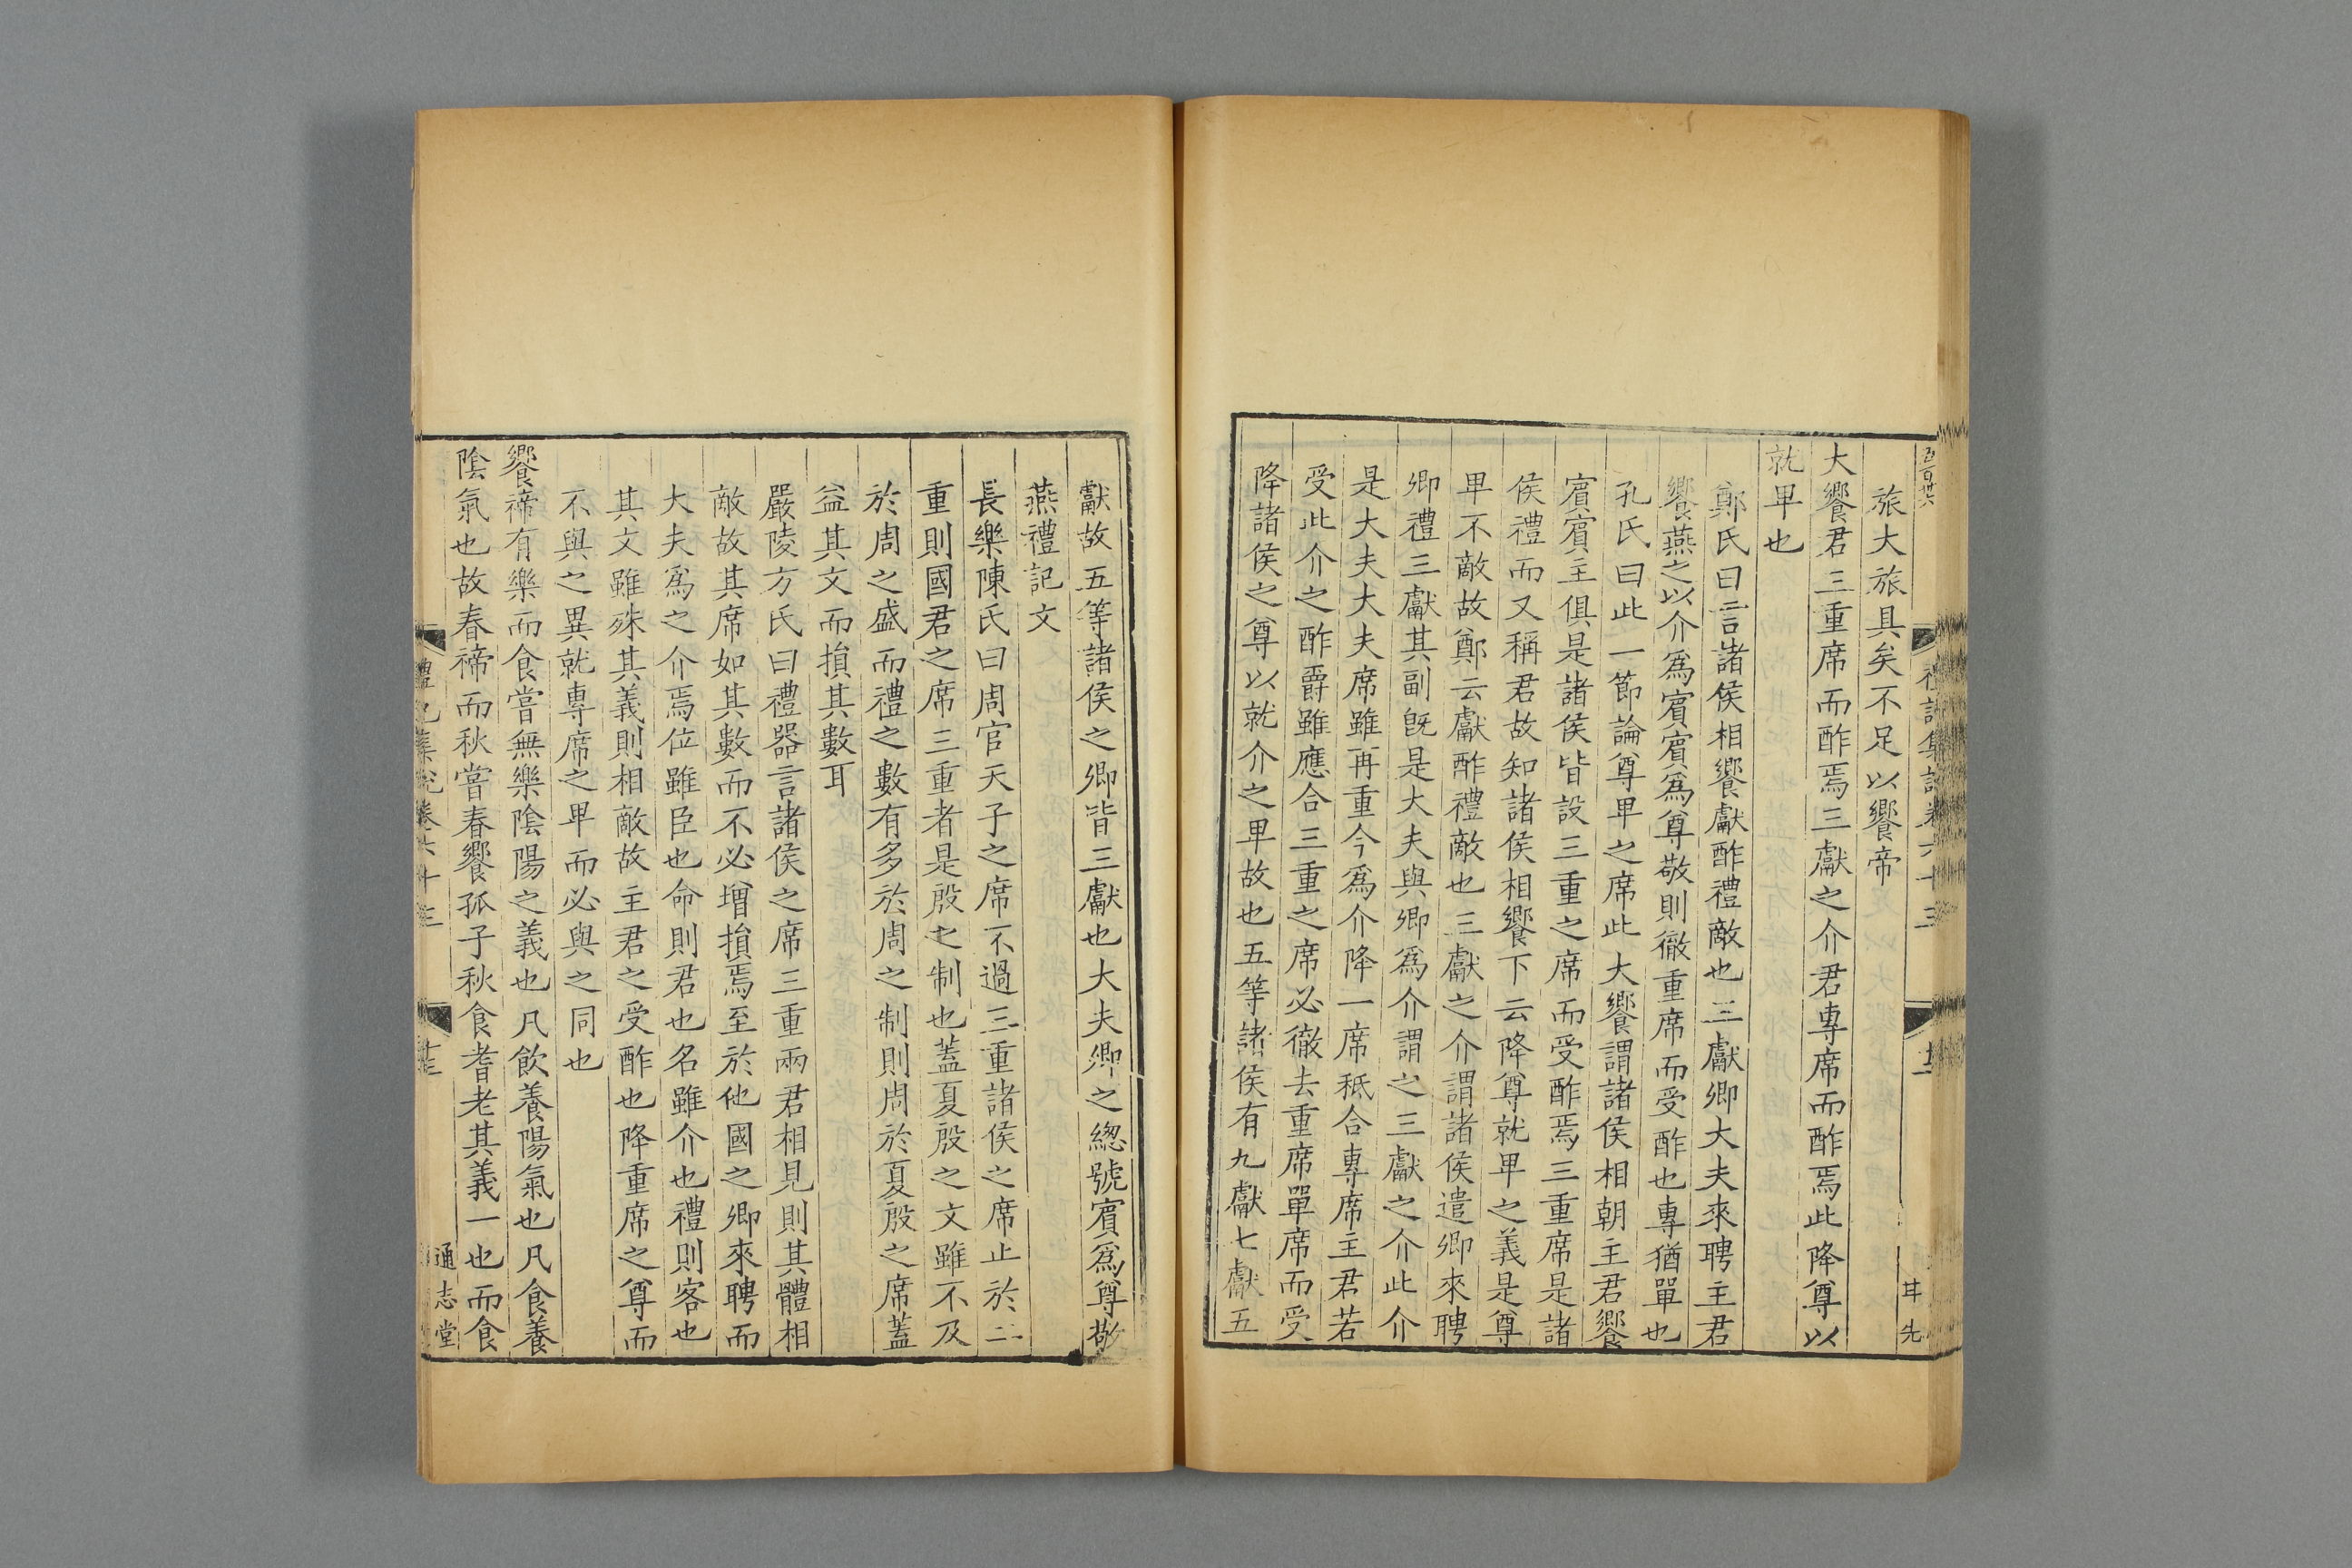 五百廿六
禮記集說卷六十三
十二
耳先
旅大旅具矣不足以饗帝
大饗君三重席而酢焉三獻之介君專席而酢焉此降尊以
就卑也
鄭氏曰言諸侯相饗獻酢禮敵也三獻卿大夫來聘主君
饗燕之以介爲賓賓爲尊敬則徹重席而受酢也專猶單也
孔氏曰此一節論尊卑之席此大饗謂諸侯相朝主君饗
賓賓主俱是諸侯皆設三重之席而受酢焉三重席是諸
侯禮而又稱君故知諸侯相饗下云降尊就卑之義是尊
卑不敵故鄭云獻酢禮敵也三獻之介謂諸侯遣卿來聘
卿禮三獻其副旣是大夫與卿爲介謂之三獻之介此介
是大夫大夫席雖再重今爲介降一席秪合專席主君若
受此介之酢爵雖應合三重之席必徹去重席單席而受
降諸侯之尊以就介之卑故也五等諸侯有九獻七獻五
獻故五等諸侯之卿皆三獻也大夫卿之緫號賓爲尊敬
燕禮記文
長樂陳氏曰周官天子之席不過三重諸侯之席止於二
重則國君之席三重者是殷之制也蓋夏殷之文雖不及
於周之盛而禮之數有多於周之制則周於夏殷之席蓋
益其文而損其數耳
嚴陵方氏曰禮器言諸侯之席三重兩君相見則其體相
敵故其席如其數而不必增損焉至於他國之卿來聘而
大夫爲之介焉位雖臣也命則君也名雖介也禮則客也
其文雖殊其義則相敵故主君之受酢也降重席之尊而
不與之異就專席之卑而必與之同也
饗禘有樂而食嘗無樂陰陽之義也凡飮養陽氣也凡食養
陰氣也故春禘而秋嘗春饗孤子秋食耆老其義一也而食
禮記集說卷六十三
十三
通志堂